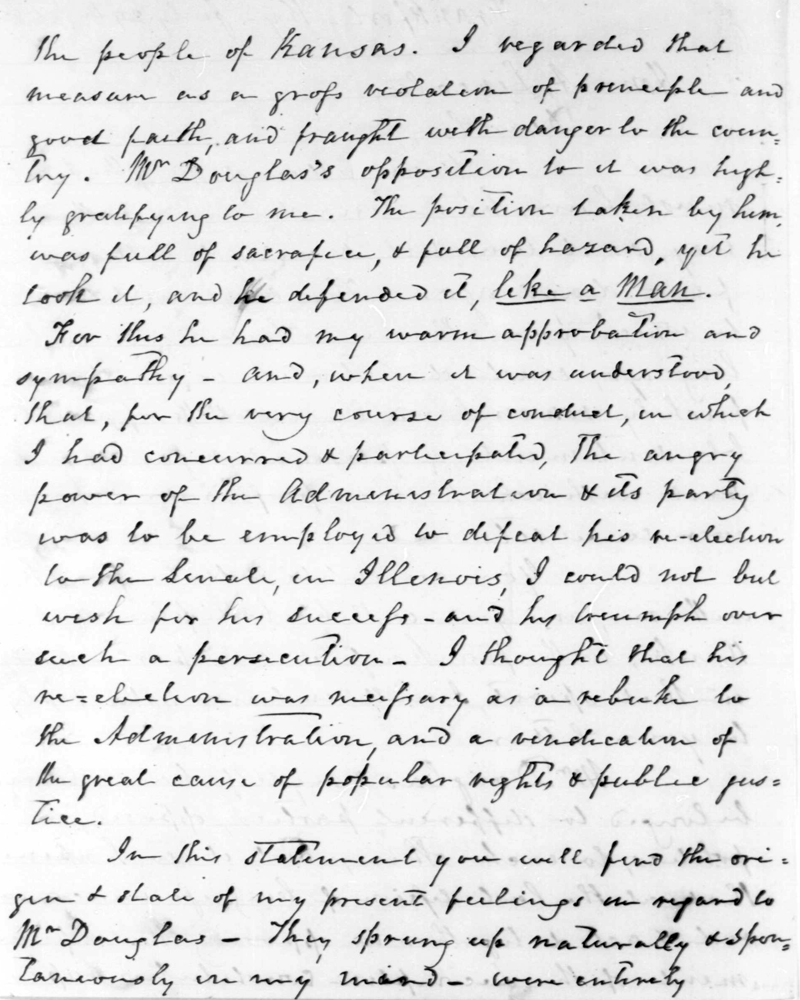 the people of Kansas. I regarded that
measure as a gross violation of principle and
good faith, and fraught with danger to the coun=
try. Mr Douglas's opposition to it was high=
ly gratifying to me. The position taken by him,
was full of sacrafice, & full of hazard, yet he
took it, and he defended it, like a Man.
For this he had my warm approbation and
sympathy - and, when it was understood,
that, for the very course of conduct, in which
I had concurred & participated, the angry
power of the Administration & its party
was to be employed to defeat his re-election
to the Senate, in Illinois, I could not but
wish for his success - and his triumph over
such a persecution - I thought that his
re=election was necessary as a rebuke to
the Administration, and a vindication of
the great cause of popular rights & public jus=
tice.
In this statement you will find the ori-
gin & state of my present feelings in regard to
Mr Douglas - They sprung up naturally & spon-
taneously in my mind - were entirely